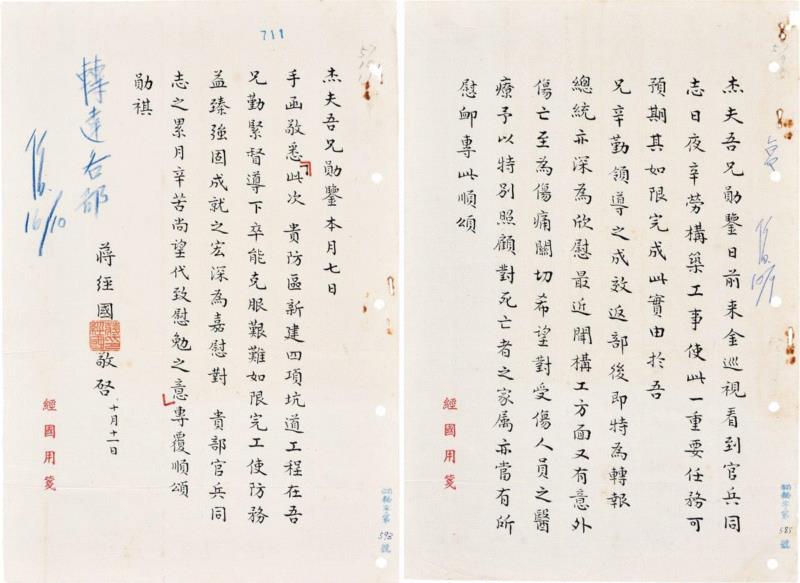 杰夫吾兄勛鑒日前來金巡視看到官兵同
志日夜辛勞構築工事使此一重要任務可
預期其如限完成此實由於吾
兄辛勤領導之成效返部後即特為轉報
總統亦深為欣慰最近聞構工方面又有意外
傷亡至為傷痛關切希望對受傷人員之醫
療予以特別照顧對死亡者之家属亦當有所
慰卹專此順頌
經國用箋
585 號
711
杰夫吾兄勛鑒本月七日
手函敬悉此次 貴防區新建四項坑道工程在吾
兄勤緊督導下卒能克服艱難如限完工使防務
益臻強固成就之宏深為嘉慰對 貴部官兵同
志之累月辛苦尚望代致慰勉之意專覆順頌
勛祺
蔣經國 敬啓 十月十一日
轉達各部
16/10
經國用箋
592 號